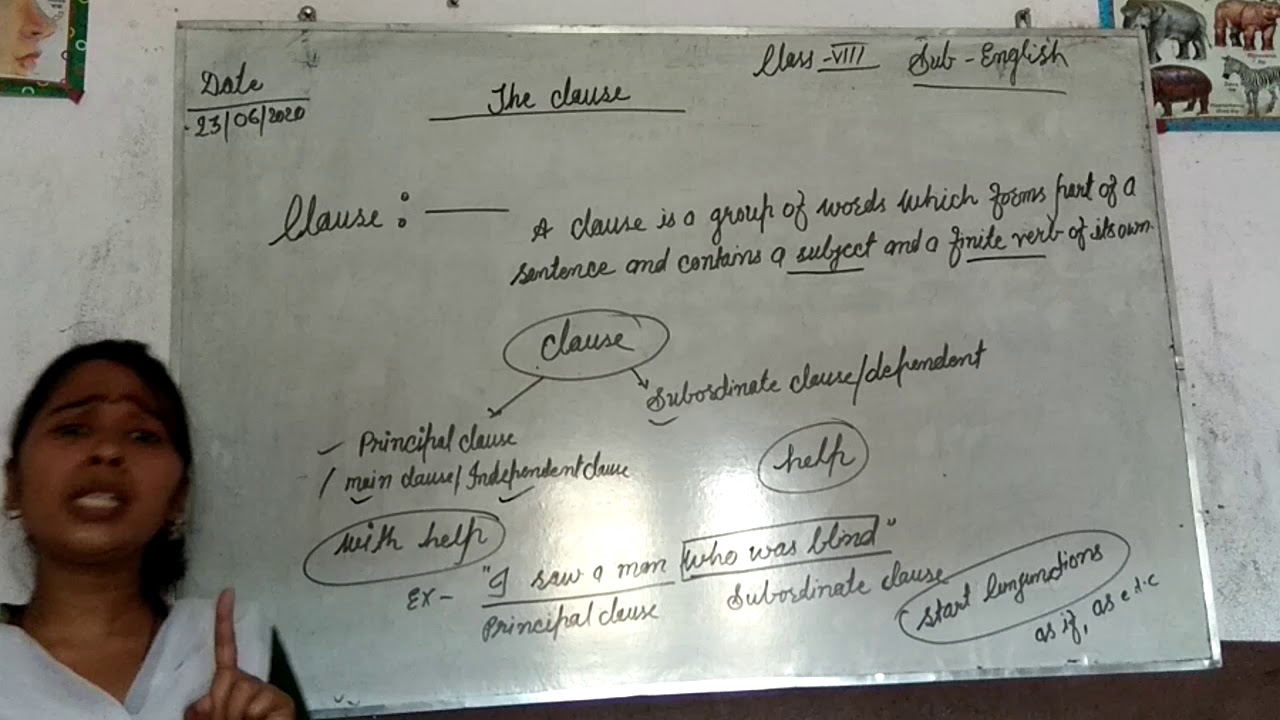 Date
23/06/2020
The clause
Class-VIII Sub-English
Clause:— A clause is a group of words which forms part of a
sentence and contains a subject and a finite verb of its own.
clause
Subordinate clause/dependent
Principal clause
/ main clause/Independent clause
help
with help
Ex- "I saw a man who was blind"
Principal clause Subordinate clause
start
as if, as etc